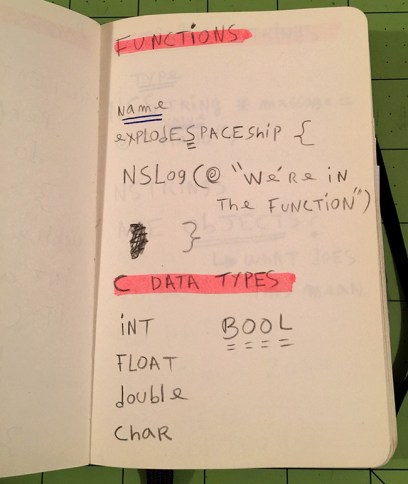 FUNCTIONS
Name
explodeSpaceship {
NSLog(@ "We're in
The FUNCTION")
}
C DATA TYPES
iNT BOOL
FLOAT
double
Char